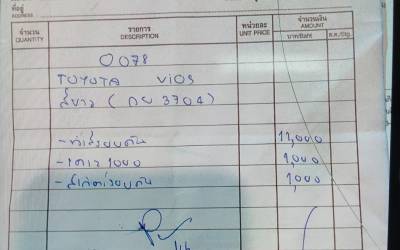 ที่อยู่
ADDRESS
จำนวน รายการ หน่วยละ จำนวนเงิน
QUANTITY DESCRIPTION UNIT PRICE AMOUNT
บาท/Baht ส.ต./Stg.
0078
TOYOTA VIOS
สีขาว ( กย 3704)
- ทำสีรอบคัน 11,000
- เคเว 1,000
- สเกิตรอบคัน 1,000